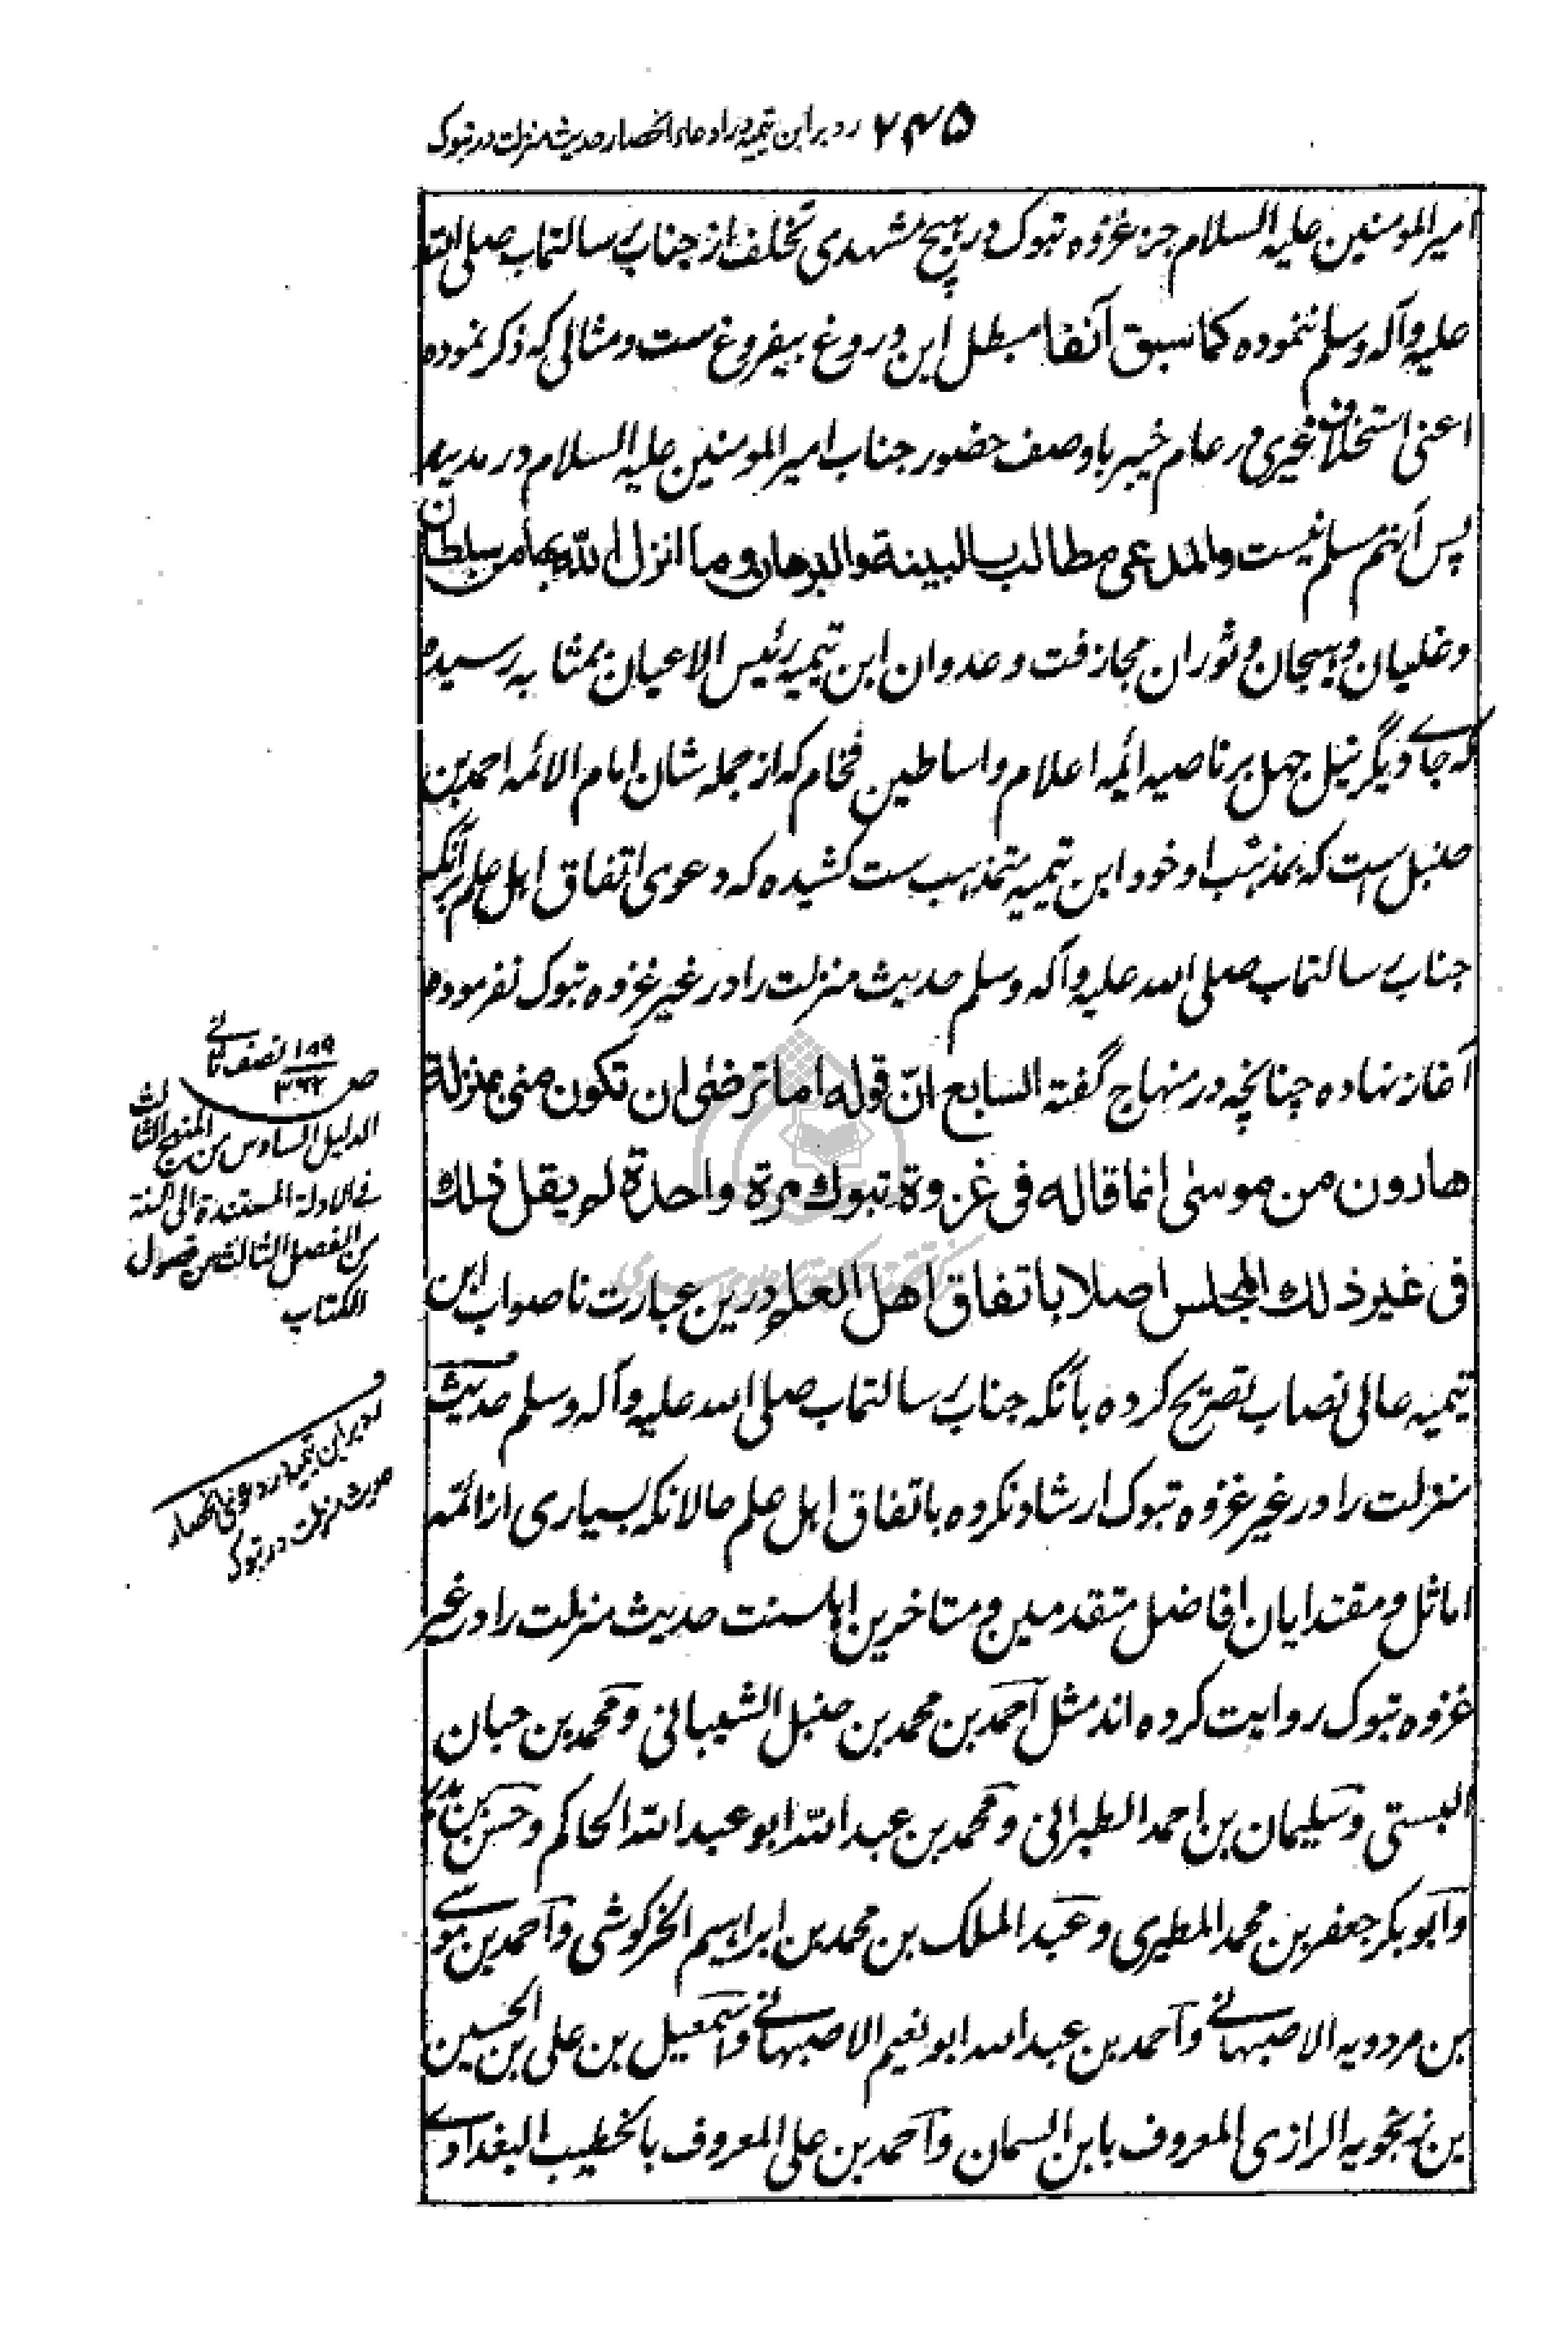 ۲۴۵ رد بر ابن تیمیه در ادعاء انحصار حدیث منزلت در تبوک
امیر المومنین علیه السلام جز غزوه تبوک در هیچ مشهدی تخلف از جناب رسالتمآب صلی الله
علیه وآله وسلم ننموده کما سبق آنفا مبطل این دروغ بیفروغ ست و مثالی که ذکر نموده
اعنی استخلاف غیری در عام خیبر با وصف حضور جناب امیر المومنین علیه السلام در مدینه
پس آنهم مسلم نیست والمدعی مطالب بالبینة والبرهان وما انزل الله بها من سلطان
و غلیان و هیجان و ثوران مجازفت و عدوان ابن تیمیه رئیس الاعیان بمثابه رسیده
که جای دیگر نیل جهل بر ناصیه ائمه اعلام و اساطین فخام که از جمله شان امام الائمه احمد بن
حنبل است که بمذهب او خود ابن تیمیه متمذهب ست کشیده که دعوی اتفاق اهل علم بر آنکه
جناب رسالتمآب صلی الله علیه وآله وسلم حدیث منزلت را در غیر غزوه تبوک نفرموده
آغاز نهاده چنانچه در منهاج گفته السابع انّ قوله اما ترضی ان تکون منی بمنزلة
هارون من موسی انما قاله فی غزوة تبوك مرة واحدة لم یقل ذلك
فی غیر ذلك المجلس اصلا باتفاق اهل العلم درین عبارت ناصواب ابن
تیمیه عالی نصاب تصریح کرده بآنکه جناب رسالتمآب صلی الله علیه وآله وسلم حدیث
منزلت را در غیر غزوه تبوک ارشاد نکرده باتفاق اهل علم حالانکه بسیاری از ائمه
اماثل و مقتدایان افاضل متقدمین و متاخرین اهلسنت حدیث منزلت را در غیر
غزوه تبوک روایت کرده اند مثل احمد بن محمد بن حنبل الشیبانی و محمد بن حبان
البستی و سلیمان بن احمد الطبرانی و محمد بن عبد الله ابو عبد الله الحاکم و حسن بن بدر
و ابو بکر جعفر بن محمد المطیری و عبد الملک بن محمد بن ابراهیم الخرکوشی و احمد بن موسی
بن مردویه الاصبهانی و احمد بن عبد الله ابو نعیم الاصبهانی و اسمعیل بن علی بن الحسین
بن زنجویه الرازی المعروف بابن السمان و احمد بن علی المعروف بالخطیب البغدادی
ص ۱۵۹/۳۶۲ نصف ثانی
الدلیل السادس من المنهج الثالث
فی الادلة المستندة الی السنة
من الفصل الثالث من فصول
الکتاب
رد بر ابن تیمیه در دعوی انحصار
حدیث منزلت در تبوک